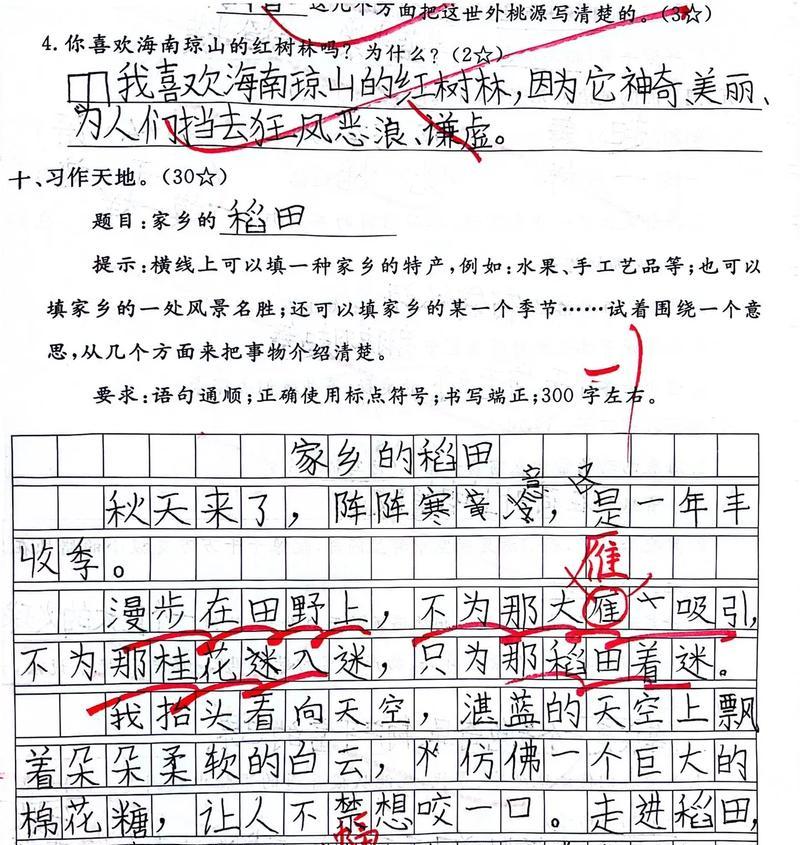 这几个方面把这世外桃源写清楚的。(3☆)
4. 你喜欢海南琼山的红树林吗？为什么？(2☆)
我喜欢海南琼山的红树林，因为它神奇、美丽、
为人们挡去狂风恶浪、谦虚。
十、习作天地。(30☆)
题目：家乡的 稻田
提示：横线上可以填一种家乡的特产，例如：水果、手工艺品等；也可以
填家乡的一处风景名胜；还可以填家乡的某一个季节……试着围绕一个意
思，从几个方面来把事物介绍清楚。
要求：语句通顺；正确使用标点符号；书写端正；300 字左右。
家乡的稻田
意
秋天来了，阵阵寒意，是一年丰
收季。
雁
漫步在田野上，不为那大雁吸引，
不为那桂花迷入迷，只为那稻田着迷。
我抬头看向天空，湛蓝的天空上飘
着朵朵柔软的白云，仿佛一个巨大的
棉花糖，让人不禁想咬一口。走进稻田，